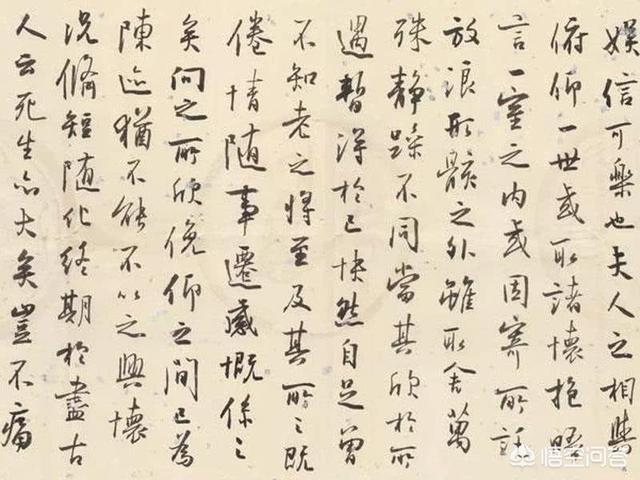 娱信可樂也夫人之相與
俯仰一世或取諸懷抱晤
言一室之内或因寄所託
放浪形骸之外雖取舍萬
殊静躁不同當其欣於所
遇暫得於己快然自足曾
不知老之將至及其所之既
倦情随事遷感慨係之
矣向之所欣俛仰之間已為
陳迹猶不能不以之興懷
況脩短随化終期於盡古
人云死生亦大矣豈不痛
悟空问答